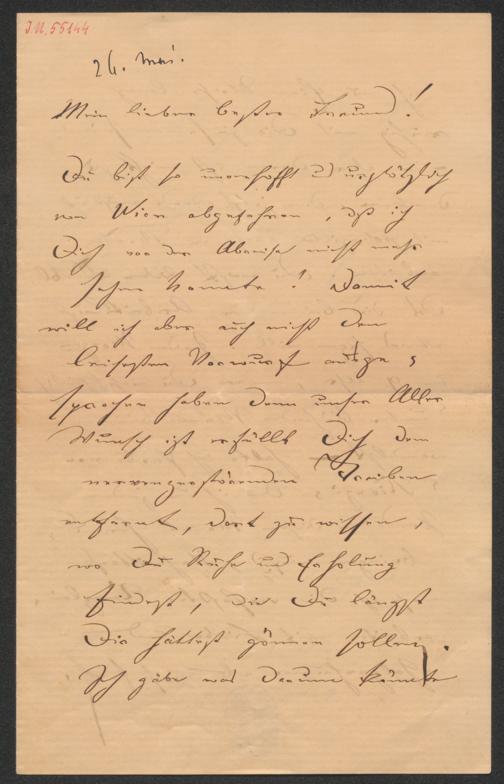 J.N. 55144
26. Mai.
Mein lieber bester Freund!
Du bist so unverhofft u urplötzlich
von Wien abgefahren, daß ich
Dich vor der Abreise nicht mehr
sehen konnte! Damit
will ich aber auch nicht den
leisesten Vorwurf ausge-
sprochen haben denn unser Aller
Wunsch ist erfüllt Dich dem
nervenzerstörenden Treiben
entfernt, dort zu wissen,
wo Du Ruhe und Erholung
findest, die Du längst
Dir hättest gönnen sollen.
Ich gäbe was darum könnte